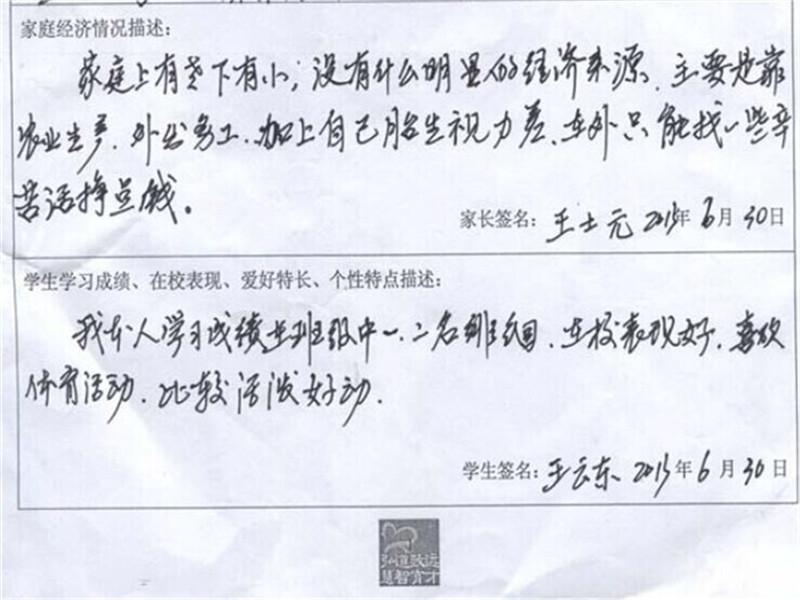 家庭经济情况描述：
家庭上有老下有小，没有什么明显的经济来源，主要是靠
农业生产，外出务工，加上自己胎生视力差，在外只能找一些辛
苦活挣点钱。
家长签名：王士元 2015年6月30日
学生学习成绩、在校表现、爱好特长、个性特点描述：
我本人学习成绩在班级中一、二名范围，在校表现好，喜欢
体育活动，比较活泼好动.
学生签名：王云东 2015年6月30日
弘道致远
慧智育才